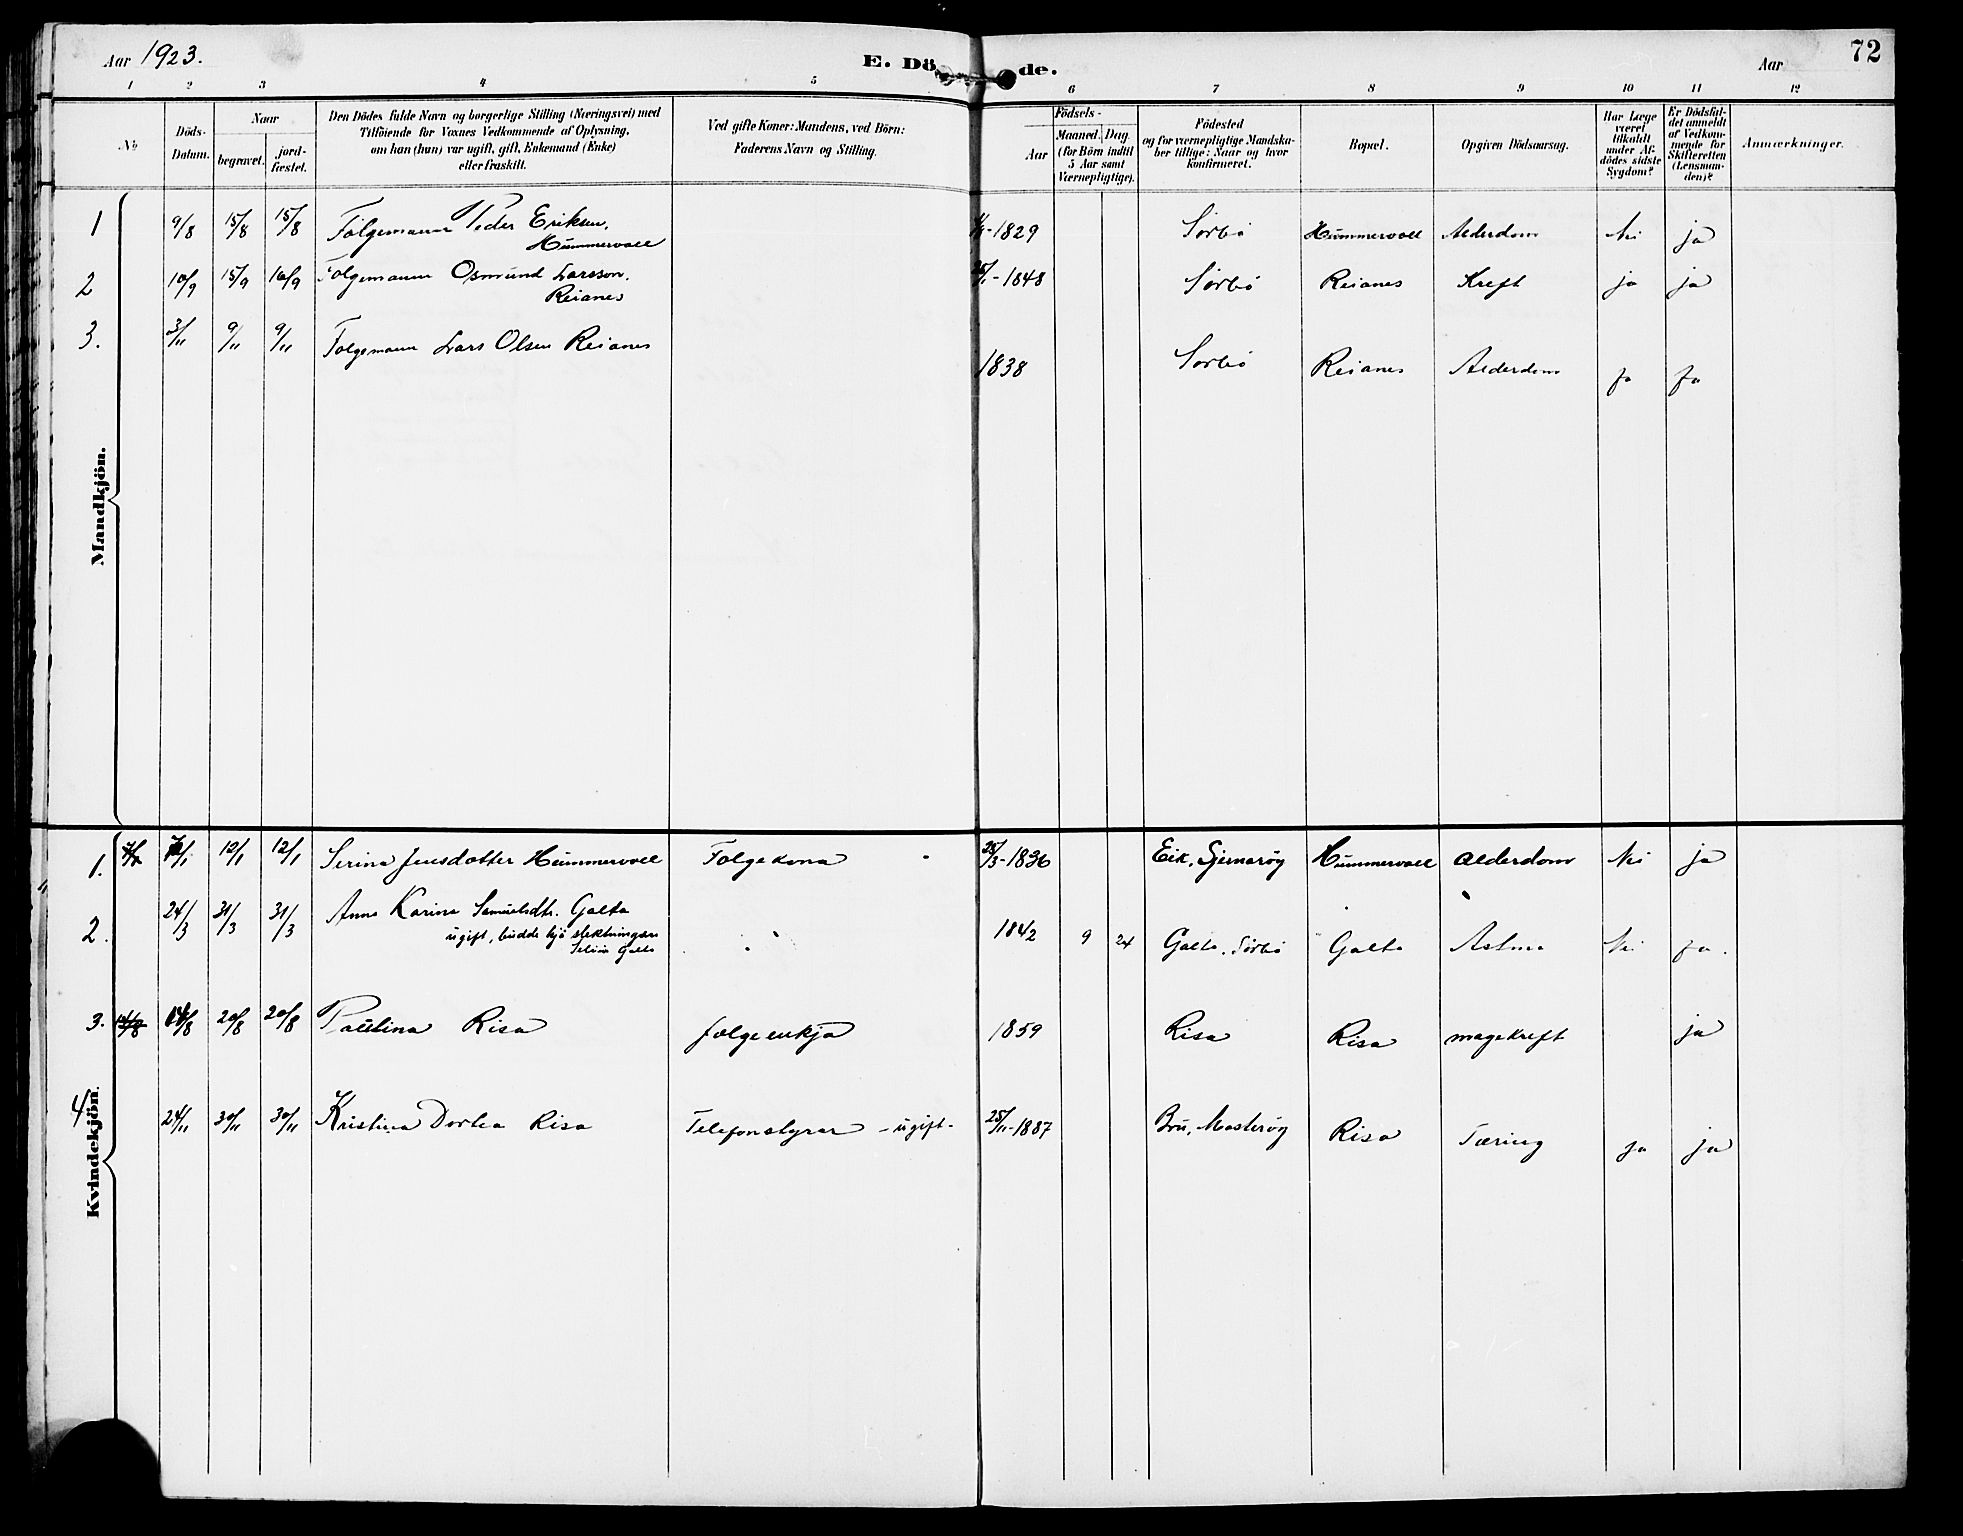 Aar 1923.
E. Dö de.
Aar
72
1 2 3 4 5 6 7 8 9 10 11 12
No
Döds-
Datum.
Naar
begravet.
jord-
fæstet.
Den Dödes fulde Navn og borgerlige Stilling (Næringsvei) med
Tilföiende for Voxnes Vedkommende af Oplysning,
om han (hun) var ugift, gift, Enkemand (Enke)
eller fraskilt.
Ved gifte Koner: Mandens, ved Börn:
Faderens Navn og Stilling.
Födsels-
Aar
Maaned. Dag.
(for Börn indtil
5 Aar samt
Værnepligtige).
Födested
og for værnepligtige Mandska-
ber tillige: Naar og hvor
konfirmeret.
Bopæl.
Opgiven Dödsaarsag.
Har Læge
været
tilkaldt
under Af-
dödes sidste
Sygdom?
Er Dödsfal-
det anmeldt
af Vedkom-
mende for
Skifteretten
(Lensman-
den)?
Anmærkninger.
Mandkjön.
1 9/8 15/8 15/8 Folgemann Peder Eriksen, 1829 Sörbö Hummervoll Alderdom Nei ja
Hummervoll
2 10/9 15/9 16/9 Folgemann Osmund Larsson, 1848 Sörbö Reianes Kreft ja ja
Reianes
3. 3/11 9/11 9/11 Folgemann Lars Olsen Reianes 1838 Sörbö Reianes Alderdom ja ja
Kvindekjön.
1. 7/1 12/1 12/1 Serina Jensdatter Hummervoll Folgekona 25/3-1836 Eik, Sjernaröy Hummervoll Alderdom Nei ja
2. 24/3 31/3 31/3 Anna Karina Samuelsdtr. Galta 1842 9 24 Galta, Sörbö Galta Astma Nei ja.
ugift, budde hjå slektningen
Galta
3. 14/8 14/8 20/8 20/8 Paulina Risa folgeenkja 1859 Risa Risa magekreft ja
4 24/11 30/11 30/11 Kristina Dortea Risa Telefonstyrar - ugift- 25/11-1887 Bru, Mosteröy Risa Tæring ja ja